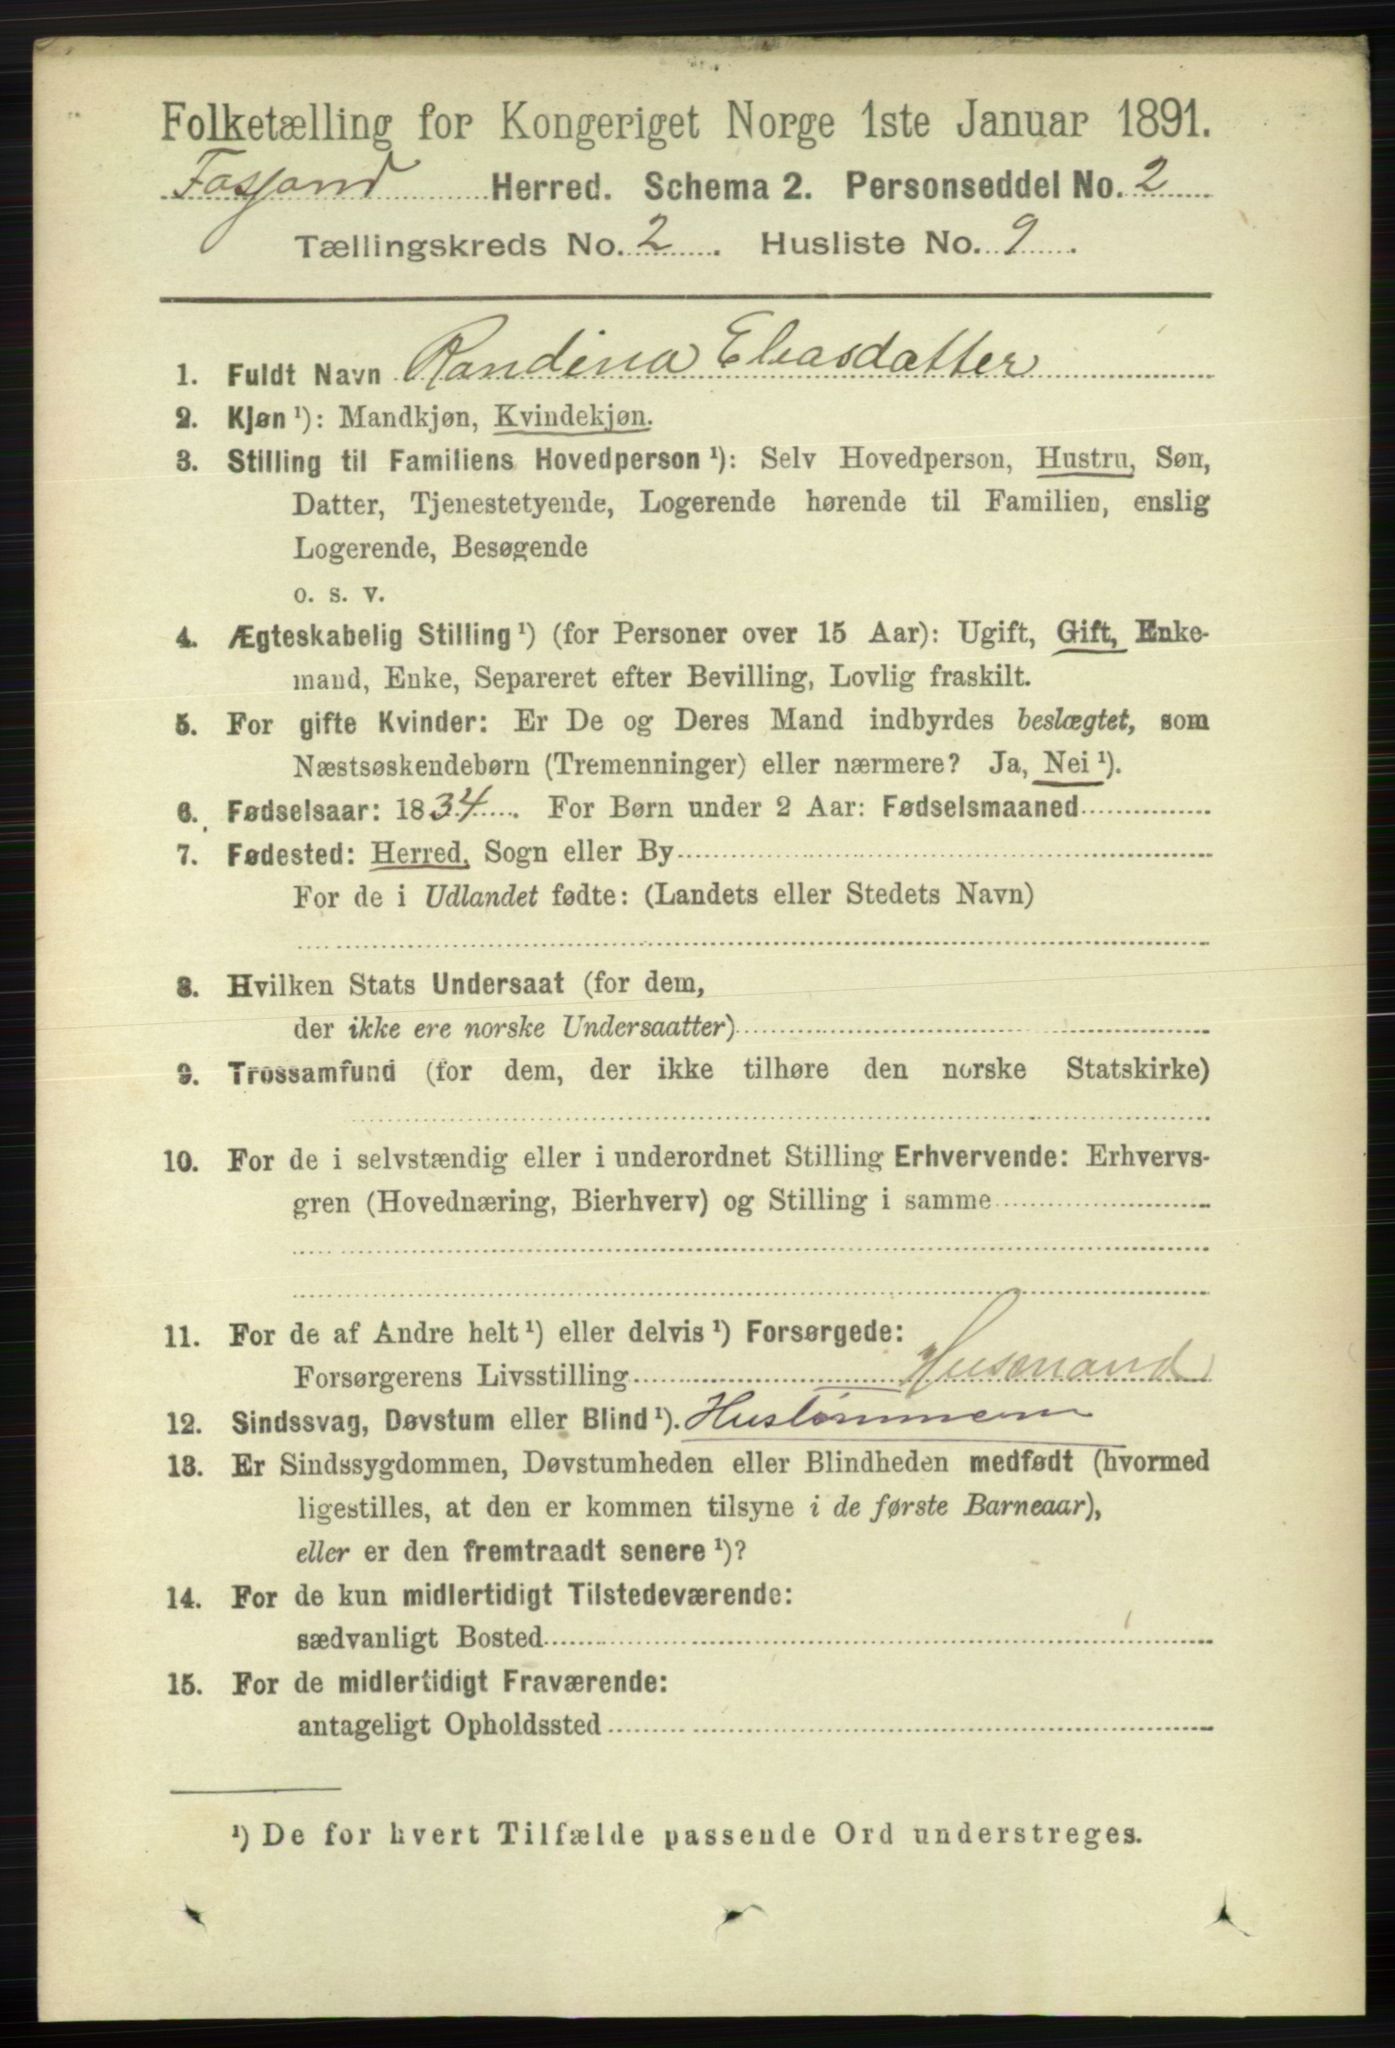 Folketælling for Kongeriget Norge 1ste Januar 1891.
Fosland Herred. Schema 2. Personseddel No. 2
Tællingskreds No. 2. Husliste No. 9.
1. Fuldt Navn Randina Eliasdatter
2. Kjøn ¹): Mandkjøn, Kvindekjøn.
3. Stilling til Familiens Hovedperson ¹): Selv Hovedperson, Hustru, Søn,
Datter, Tjenestetyende, Logerende hørende til Familien, enslig
Logerende, Besøgende
o. s. v.
4. Ægteskabelig Stilling ¹) (for Personer over 15 Aar): Ugift, Gift, Enke-
mand, Enke, Separeret efter Bevilling, Lovlig fraskilt.
5. For gifte Kvinder: Er De og Deres Mand indbyrdes beslægtet, som
Næstsøskendebørn (Tremenninger) eller nærmere? Ja, Nei ¹).
6. Fødselsaar: 1834. For Børn under 2 Aar: Fødselsmaaned
7. Fødested: Herred, Sogn eller By
For de i Udlandet fødte: (Landets eller Stedets Navn)
8. Hvilken Stats Undersaat (for dem,
der ikke ere norske Undersaatter)
9. Trossamfund (for dem, der ikke tilhøre den norske Statskirke)
10. For de i selvstændig eller i underordnet Stilling Erhvervende: Erhvervs-
gren (Hovednæring, Bierhverv) og Stilling i samme
11. For de af Andre helt ¹) eller delvis ¹) Forsørgede:
Forsørgerens Livsstilling Husmand
12. Sindssvag, Døvstum eller Blind ¹). Hustømmerm
13. Er Sindssygdommen, Døvstumheden eller Blindheden medfødt (hvormed
ligestilles, at den er kommen tilsyne i de første Barneaar),
eller er den fremtraadt senere ¹)?
14. For de kun midlertidigt Tilstedeværende:
sædvanligt Bosted
15. For de midlertidigt Fraværende:
antageligt Opholdssted
¹) De for hvert Tilfælde passende Ord understreges.